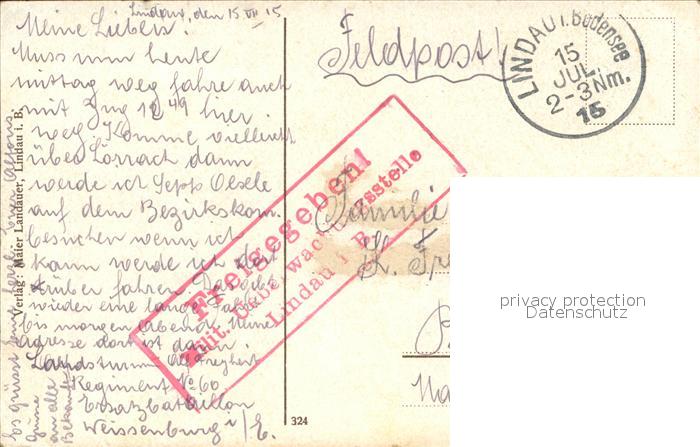 Lindau, den 15 VII 15
Meine Lieben!
Muss nun heute
mittag weg fahre auch
mit Zug 12 49 hier
weg. Komme vielleicht
über Lörrach dann
werde ich Sepp Oesele
auf dem Bezirkskom.
besuchen wenn ich
kann werde ich
drüber fahren. Das gibt
wieder eine lange Fahrt
bis morgen abend. Meine
Adresse dort ist dann
Landsturmm.
Regiment No 60
Ersatzbataillon
Weissenburg i/E.
Es grüsst Euch herzl. Euer Alfons.
Grüsse
an alle
Bekannte
Verlag: Maier Landauer, Lindau i. B.
Feldpost!
LINDAU i. Bodensee
15
JUL.
2-3 Nm.
15
Freigegeben!
Milit. Ueberwachungsstelle
Lindau i. B.
Familie
324
privacy protection
Datenschutz